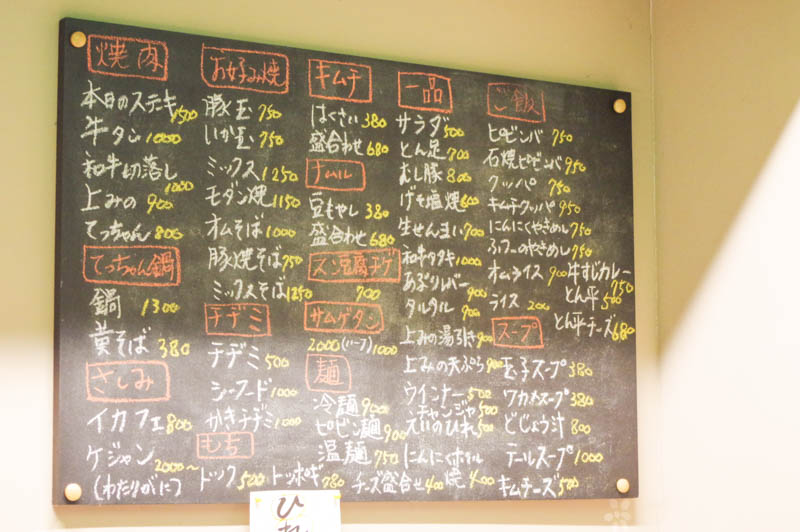 焼肉
本日のステーキ 1500
牛タン 1000
和牛切落し
1000
上みの 900
てっちゃん 800
てっちゃん鍋
鍋 1300
黄そば 380
さしみ
イカフェ 800
ケジャン 2000〜
(わたりがに)
お好み焼
豚玉 750
いか玉 750
ミックス 1250
モダン焼 1150
オムそば 1000
豚焼そば 750
ミックスそば 1250
チヂミ
チヂミ 500
シーフード 1000
かきチヂミ 1000
もち
トック 500 トッポギ 780
キムチ
はくさい 380
盛合わせ 680
ナムル
豆もやし 380
盛合わせ 680
スン豆腐チゲ
900
サムゲタン
2000 (ハーフ) 1000
麺
冷麺 900
ピビン麺 900
温麺 750
チーズ盛合せ 400
一品
サラダ 500
とん足 700
むし豚 800
げそ塩焼 600
生せんまい 900
和牛タタキ 1000
あぶりレバー
900
タルタル 900
上みの湯引き 900
上みの天ぷら 900
ウインナー 500
チャンジャ 500
えいのひれ 500
にんにくホイル
焼 400
ご飯
ピビンバ 750
石焼ピビンバ 950
クッパ 750
キムチクッパ 950
にんにくやきめし 750
オムライス 900
ライス 200
牛すじカレー
750
とん平 500
とん平チーズ 680
スープ
玉子スープ 380
ワカメスープ 380
どじょう汁 800
テールスープ 1000
キムチーズ 500
ひ
れ